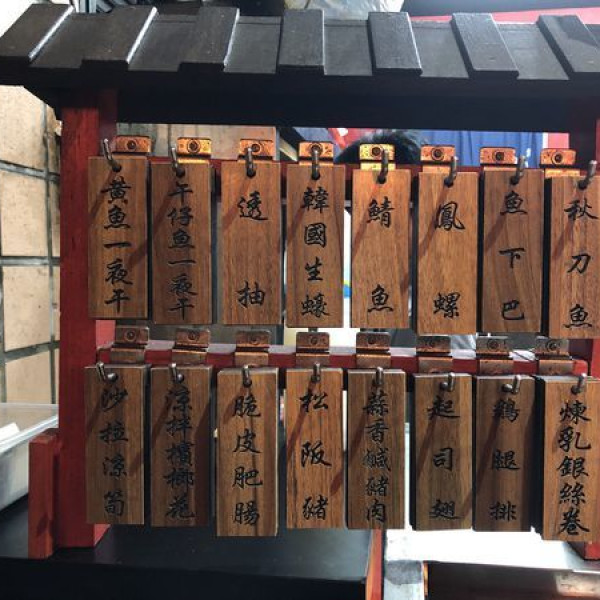 黃魚一夜干
午仔魚一夜干
透抽
韓國生蠔
鯖魚
鳳螺
魚下巴
秋刀魚
沙拉涼筍
涼拌檳榔花
脆皮肥腸
松阪豬
蒜香鹹豬肉
起司翅
鷄腿排
煉乳銀絲卷